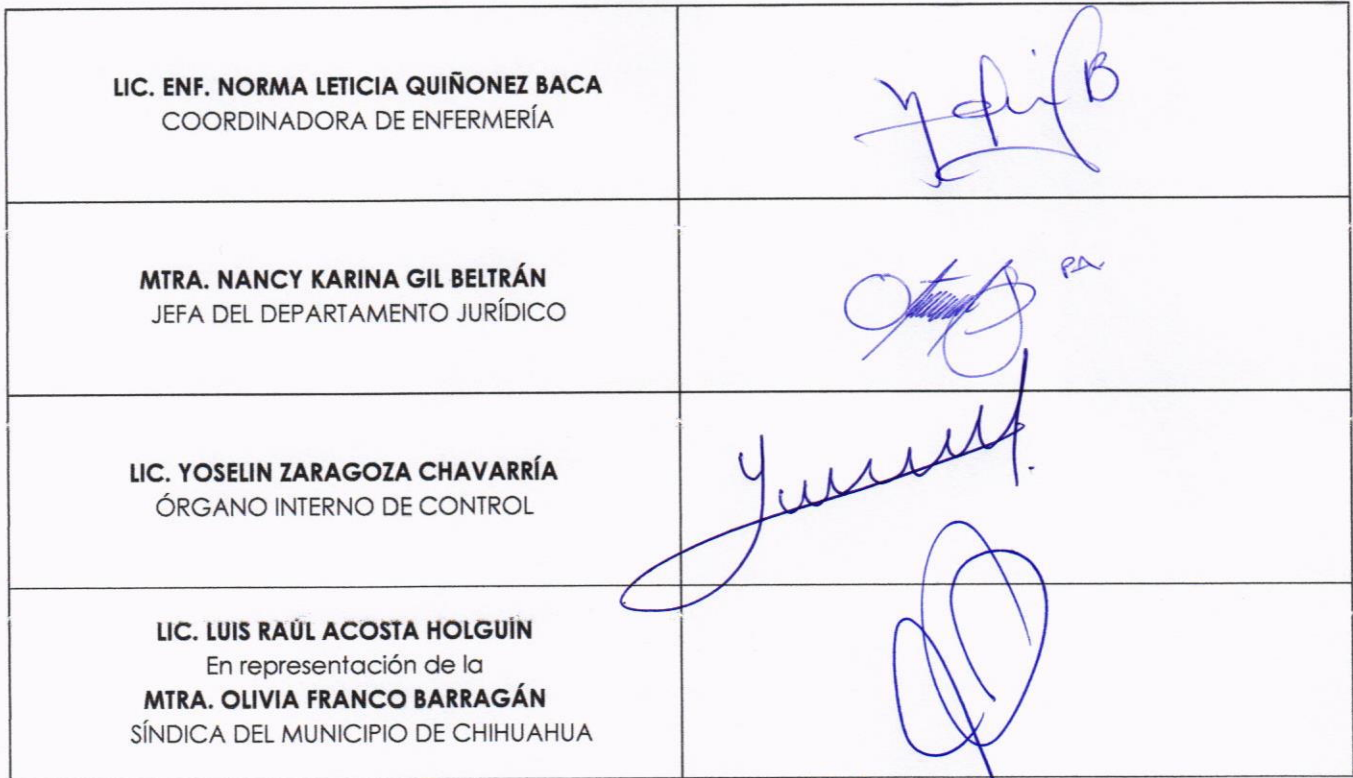 LIC. ENF. NORMA LETICIA QUIÑONEZ BACA
COORDINADORA DE ENFERMERÍA
MTRA. NANCY KARINA GIL BELTRÁN
JEFA DEL DEPARTAMENTO JURÍDICO
PA.
LIC. YOSELIN ZARAGOZA CHAVARRÍA
ÓRGANO INTERNO DE CONTROL
LIC. LUIS RAÚL ACOSTA HOLGUÍN
En representación de la
MTRA. OLIVIA FRANCO BARRAGÁN
SÍNDICA DEL MUNICIPIO DE CHIHUAHUA